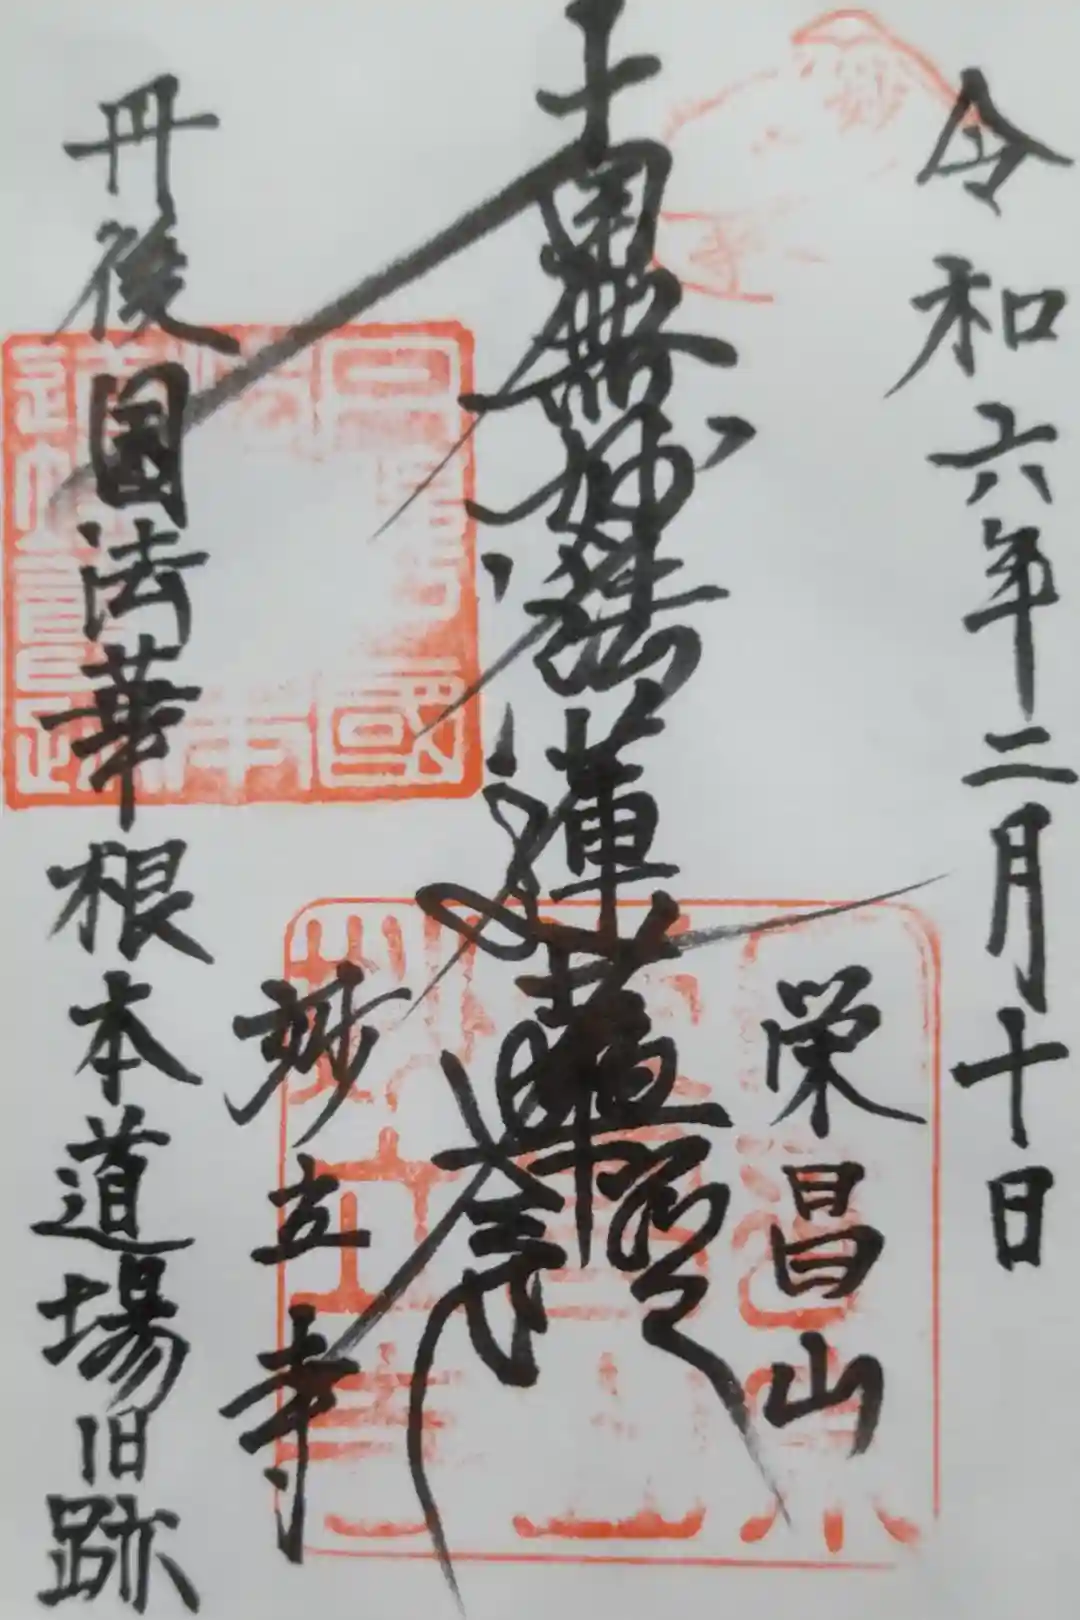 令和六年二月十日
栄昌山
南無妙法蓮華経
妙立寺
丹後國法華根本道場旧跡